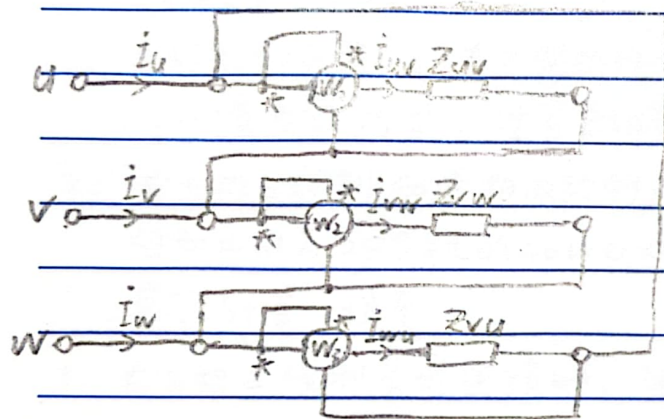 U i̇u * W₁ * i̇uv Zuv
V i̇v * W₂ * i̇vw Zvw
W i̇w * W₃ * i̇wu Zvu